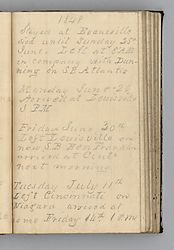 1848
Stayed at Boonville
and until Sunday 25th
June Left at 8 AM
in company with Dun-
ning on S B Atlantic
Monday June 26
Arrived at Louisville
8 PM
Friday June 30th
Left Louisville on
new S.B. Ben Franklin
arrived at Cinti
next morning
Tuesday July 11th
Left Cincinnati on
Niagara arrived at
home Friday 14th 1 PM